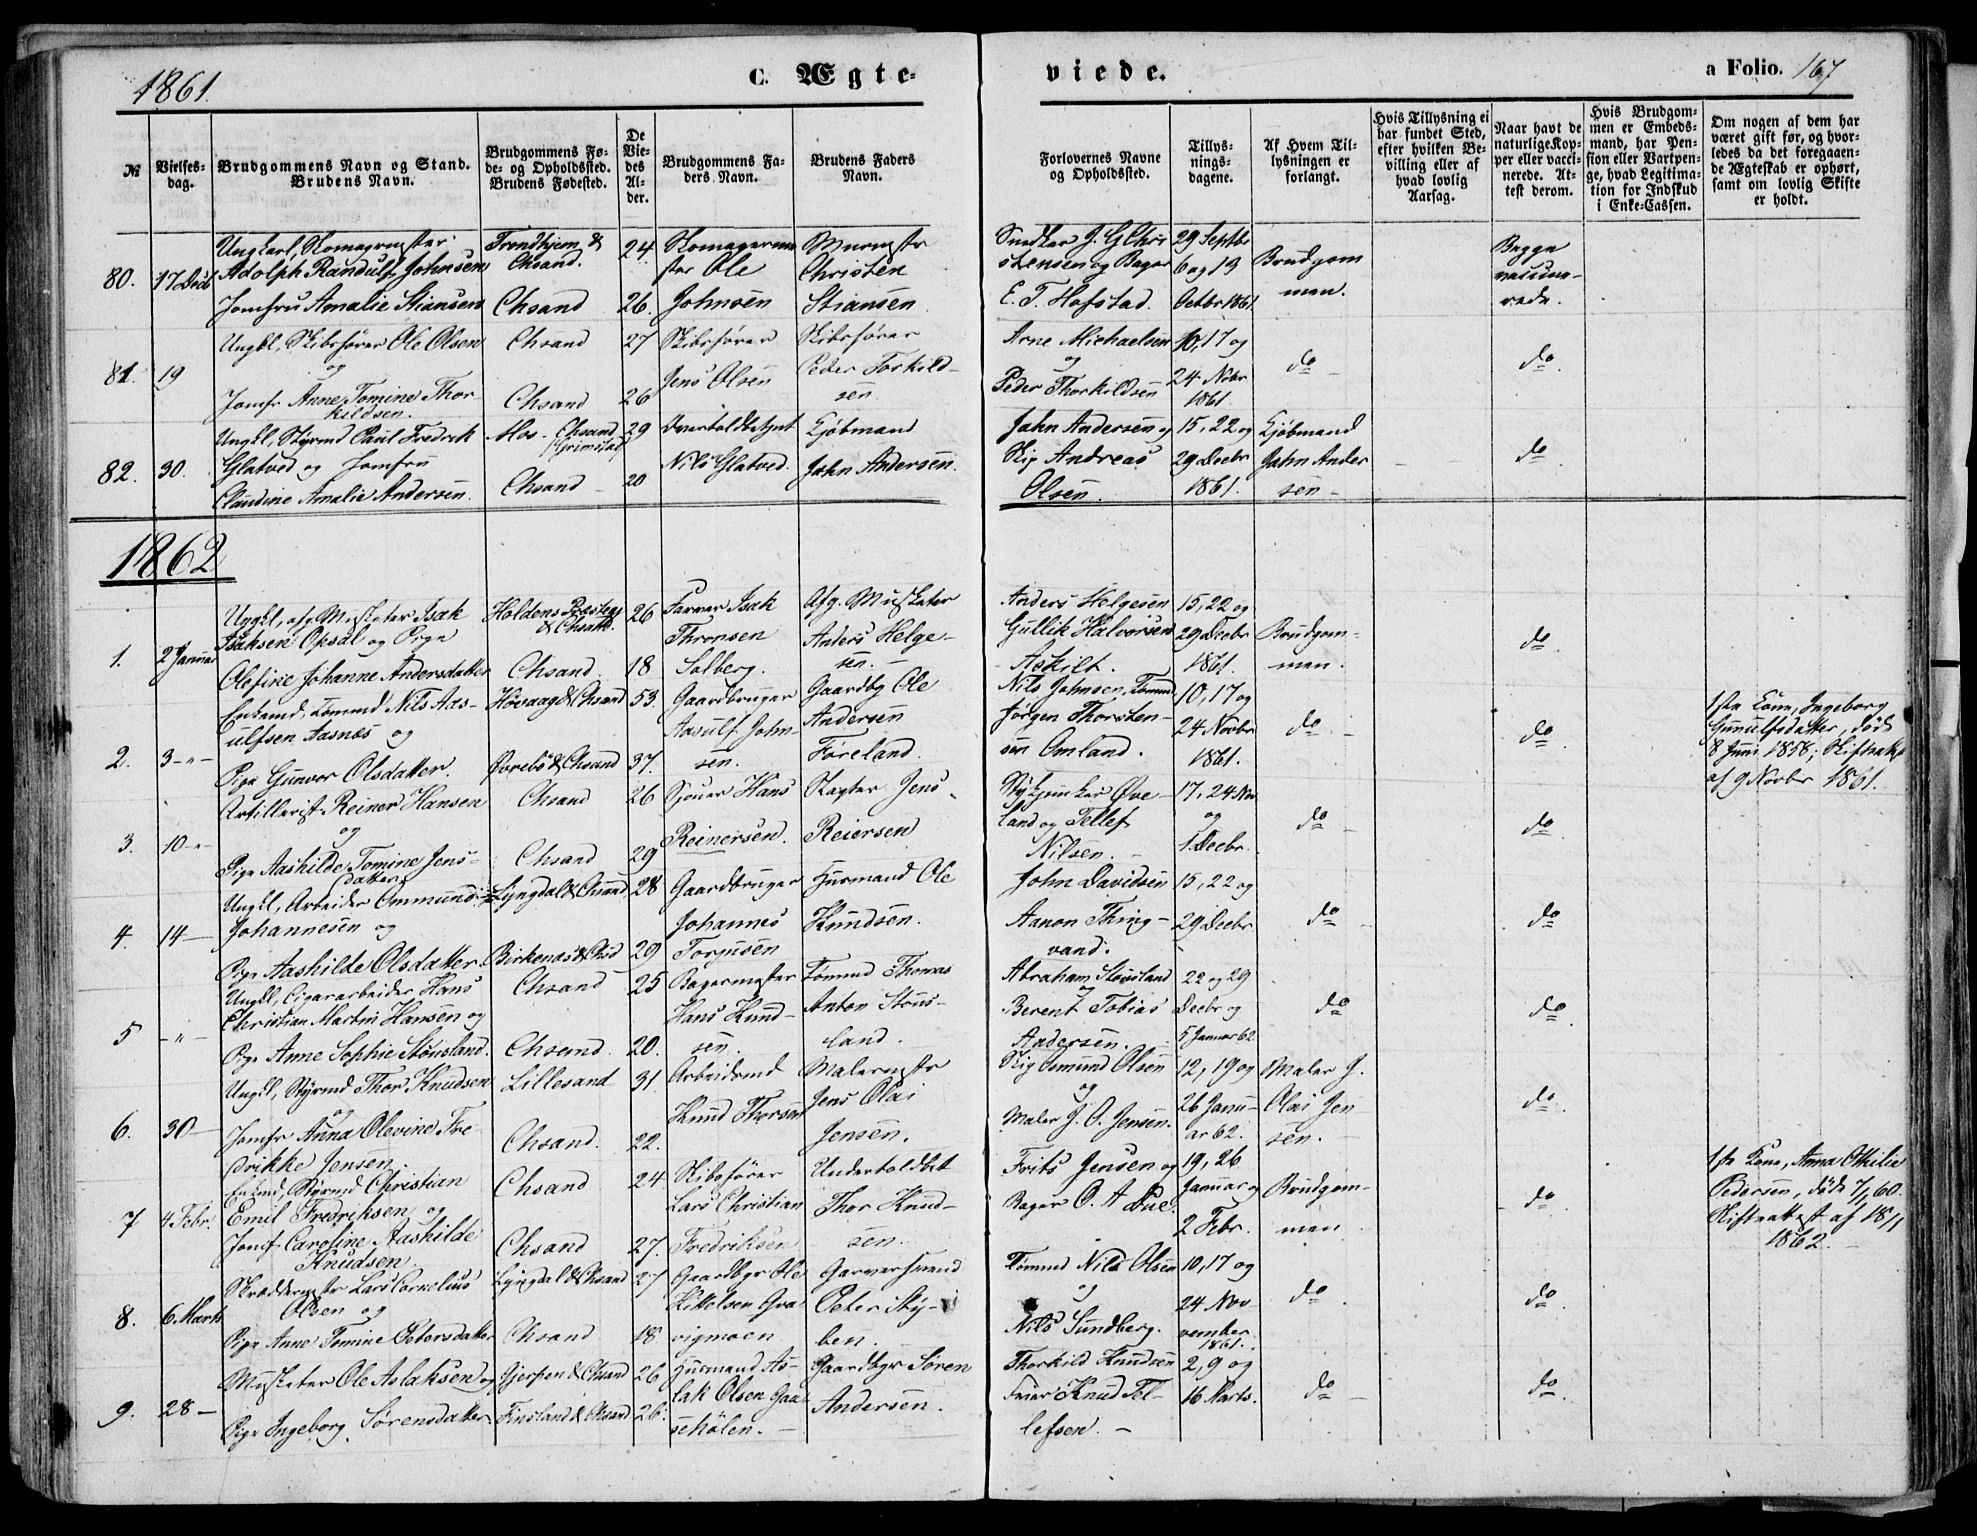 1861.
C. Ægte-
viede.
a Folio. 167
№
Vielses-
dag.
Brudgommens Navn og Stand.
Brudens Navn.
Brudgommens Fø-
de- og Opholdssted.
Brudens Fødested.
De
Vie-
des
Al-
der.
Brudgommens Fa-
ders Navn.
Brudens Faders
Navn.
Forlovernes Navne
og Opholdssted.
Tillys-
nings-
dagene.
Af Hvem Til-
lysningen er
forlangt.
Hvis Tillysning ei
har fundet Sted,
efter hvilken Be-
villing eller af
hvad lovlig
Aarsag.
Naar havt de
naturlige Kop-
per eller vacci-
nerede. At-
test derom.
Hvis Brudgom-
men er Embeds-
mand, har Pen-
sion eller Vartpen-
ge, hvad Legitima-
tion for Indskud
i Enke-Cassen.
Om nogen af dem har
været gift før, og hvor-
ledes da det foregaaen-
de Ægteskab er ophørt,
samt om lovlig Skifte
er holdt.
80. 17 Decb
Ungkarl, Skomagermster
Adolph Randulf Johnsen
Jomfru Amalie Stiansen
Trondhjem &
Chsand.
Chsand
24.
26.
Skomagerme
ster Ole
Johnsen
Murmstr
Christen
Stiansen
Snedker J. G Chri
stensen og Bager
E. T. Hofstad.
29 Septbr
6 og 13
Octbr 1861.
Brudgom
men.
Begge
vaccine-
rede.
81. 19
Ungkl, Skibsfører Ole Olsen
og
Jomfr Anne Tomine Thor-
kildsen.
Chsand
Chsand
27
26
Skibsfører
Jens Olsen
Skibsfører
Peder Torkild-
sen
Arne Michaelsen
og
Peder Thorkildsen
10, 17 og
24 Nobr
1861.
do
do
82. 30.
Ungkl, Styrmd Paul Fredrik
Glatved og Jomfru
Claudine Amalie Andersen.
Mos- Chsand
(Grimstad)
Chsand
29
20
Nils Glatved.
Kjøbmand
John Andersen.
John Andersen og
Skip Andreas
Olsen.
15, 22 og
29 Decbr
1861.
Kjøbmand
John Ander
sen
do
1862
1. 2 Januar
Ungkl, afg. Musketer Isak
Isaksen Opsal og Pige
Olefine Johanne Andersdatter
Holdens Præstegj
& Chsand.
Chsand
26
18
Farver Isak
Thronsen
Solberg.
Afg. Musketer
Anders Helge-
sen.
Anders Helgesen
Gullik Halvorsen
Askilt.
15, 22 og
29 Decbr
1861.
Brudgom-
men.
do
2. 3-"-
Enkemd, Tømmd Nils Aas-
ulfsen Aasnæs og
Pige Gunvor Olsdatter.
Høvaag & Chsand
Øvrebø & Chsand
53.
37.
Gaardbruger
Aasulf John-
sen.
Gaardbg Ole
Andersen
Føreland.
Nils Johnsen, Tømmd
Jørgen Thorsten-
sen Omland.
10, 17 og
24 Novbr
1861.
do
do
1ste Kone, Ingeborg
Gunulfsdatter, død
8 Juni 1858; Skifteatt.
af 9 Novbr 1861.
3. 10-"-
Artillerist Reiner Hansen
og
Pige Aashilde Tomine Jens-
datter
Chsand
Chsand
26
29
Sjouer Hans
Reinersen.
Slagter Jens
Reiersen
Øve-
land og Tellef
Nilsen.
17, 24 Nov
og
1 Decbr.
do
do
4. 14-
Ungkl, Arbeider Ommund
Johannesen og
Pige Aashilde Olsdatter.
Lyngdal & Chsand
Birkenæs & Chsd
28
29
Gaardbruger
Johannes
Torjusen
Husmand Ole
Knudsen.
John Davidsen
Aanon Thing-
vand.
15, 22 og
29 Decbr
do
do
5 -"-
Ungkl, Cigararbeider Hans
Christian Martin Hansen og
Pige Anne Sophie Stønsland.
Chsand
Chsand.
25
20.
Bagermester
Hans Knud-
sen.
Tømmd Thomas
Anton Støns-
land.
Abraham Stønsland
og
Berent Tobias
Andersen.
22 og 29
Decbr og
5 Januar 62.
do
do
6. 30-
Ungkl, Styrmd Thor Knudsen
og
Jomfr Anna Olevine Fre-
drikke Jensen
Lillesand
Chsand.
31.
22.
Arbeidsmd
Knud Thorsen
Malermstr
Jens Olai
Jensen.
Skip Osmund Olsen
og
Maler J. O. Jensen.
12, 19 og
26 Janu-
ar 62.
Maler J.
Olai Jen-
sen.
do
7 4 Febr.
Enkmd, Styrmd Christian
Emil Fredriksen og
Jomf. Caroline Aashilde
Knudsen
Chsand
Chsand
24
27.
Skibsfører
Lars Christian
Fredriksen
Thor Knud-
sen.
Frits Jensen og
Bager O. A Due.
19, 26
Januar og
2 Febr.
Brudgom-
men
do
1ste Kone, Anna Othilie
Pedersen, døde 7/1 60.
Skifteattest af 18/1
1862.
8. 6. Marts
Skræddermstr Lars Cornelius
Olsen og
Pige Anne Tomine Petersdatter
Lyngdal & Chsand
Chsand
27
18.
Gaardbgr Ole
Kittelsen Qva-
vigmoen
Garversvend
Peter Sty-
ben
Tømmd Nils Olsen
og
Nils Sundberg.
10, 17 og
24 Nov-
vember
1861.
do
do
9. 28-
Musketer Ole Aslaksen og
Pige Ingeborg Sørensdatter
Gjerpen & Chsand
Finsland & Chsand
26
26.
Husmand As-
lak Olsen Gaa-
seholen.
Gaardbgr Søren
Andersen.
Thorkild Knudsen
Feier Knud Tel-
lefsen.
2, 9 og
16 Marts.
do
do